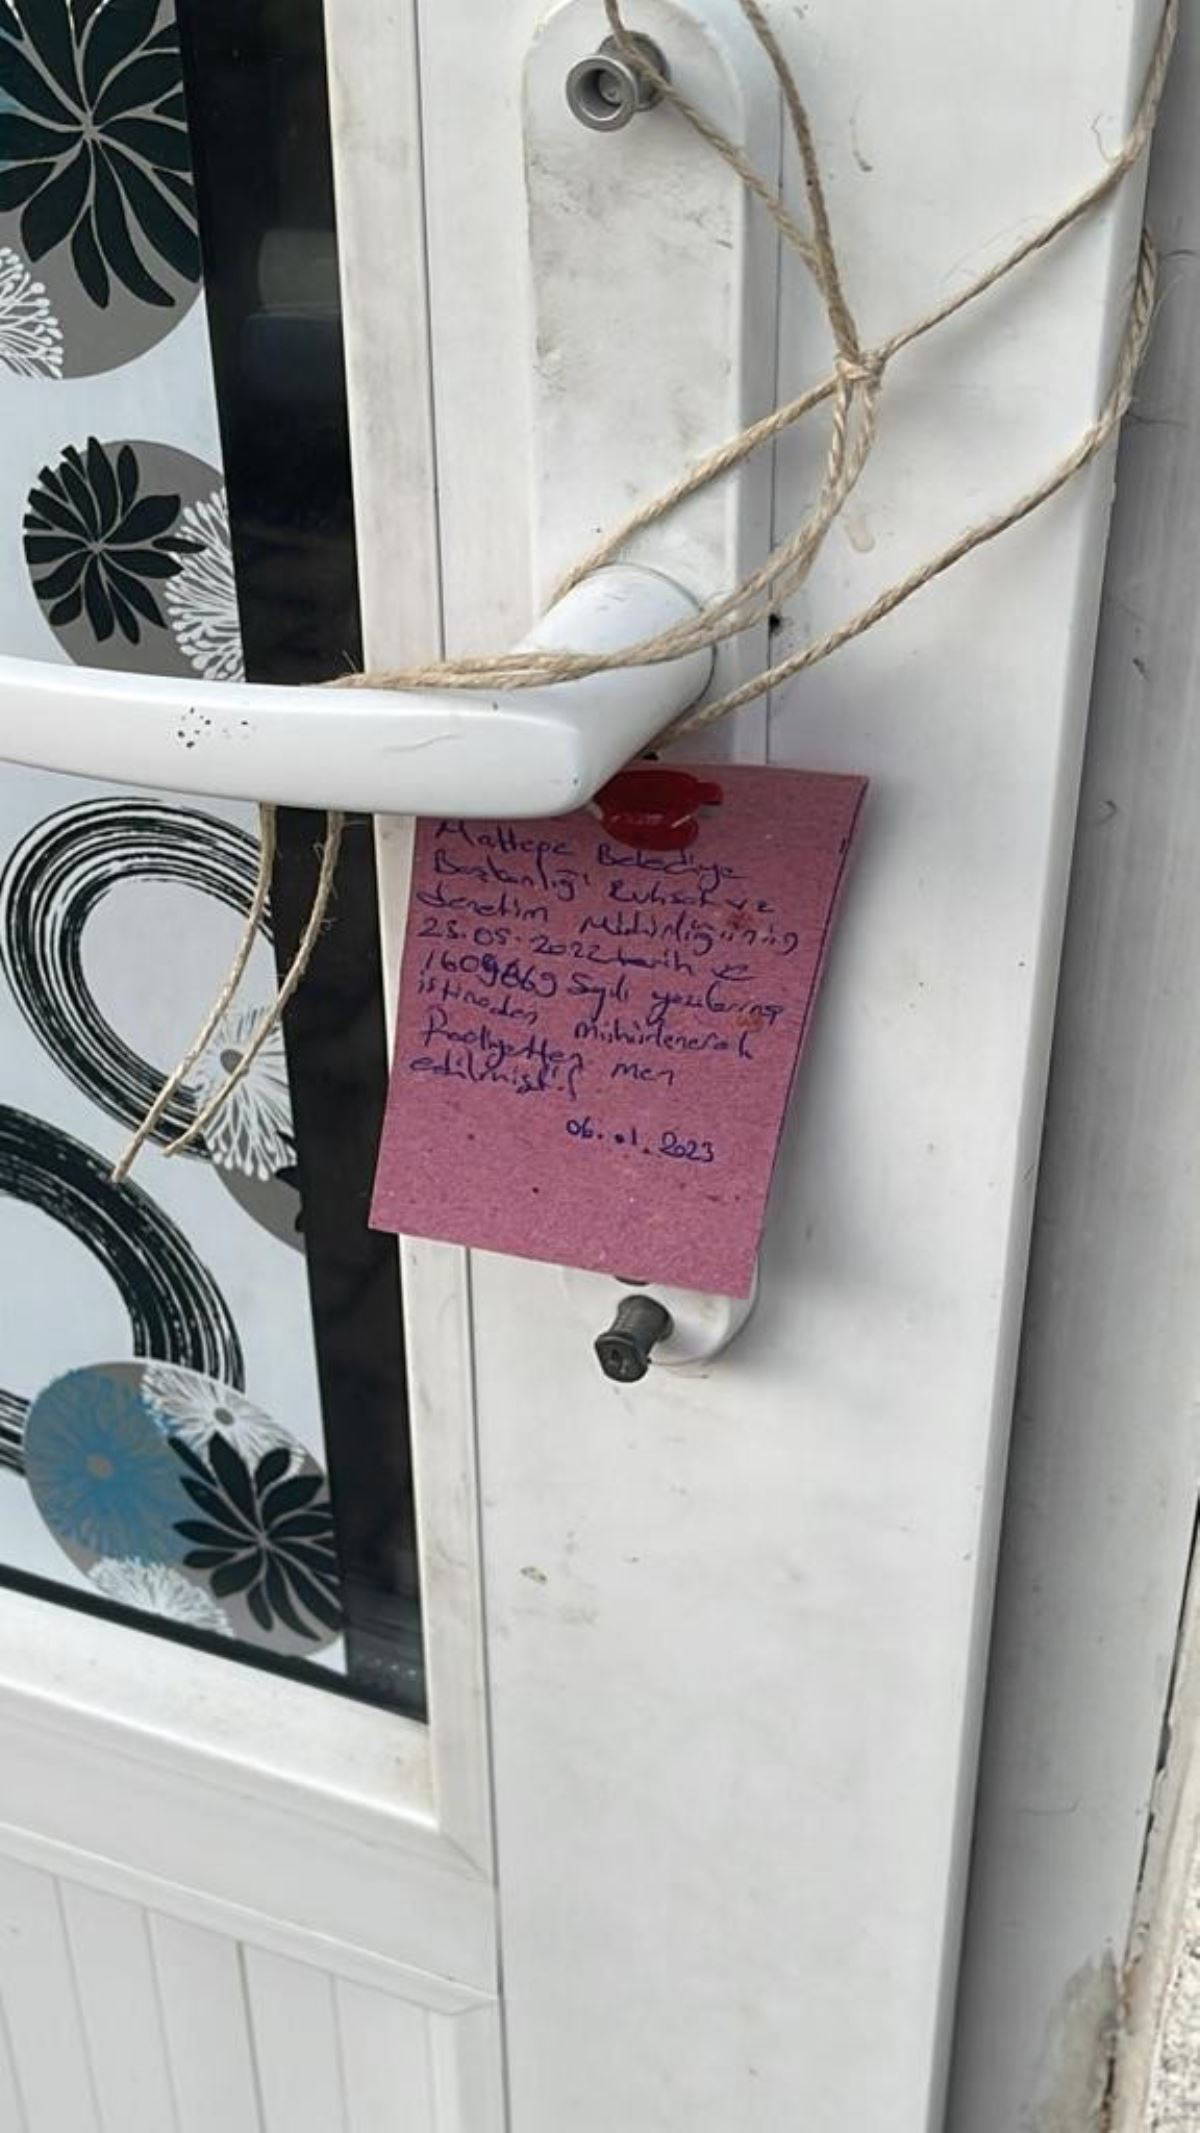 Maltepe Belediye
Başkanlığı Ruhsat ve
denetim Müdürlüğünün
25.05.2022 tarih ve
1609869 Sayılı yazılarına
istinaden mühürlenerek
Faaliyetten men
edilmiştir
06.01.2023